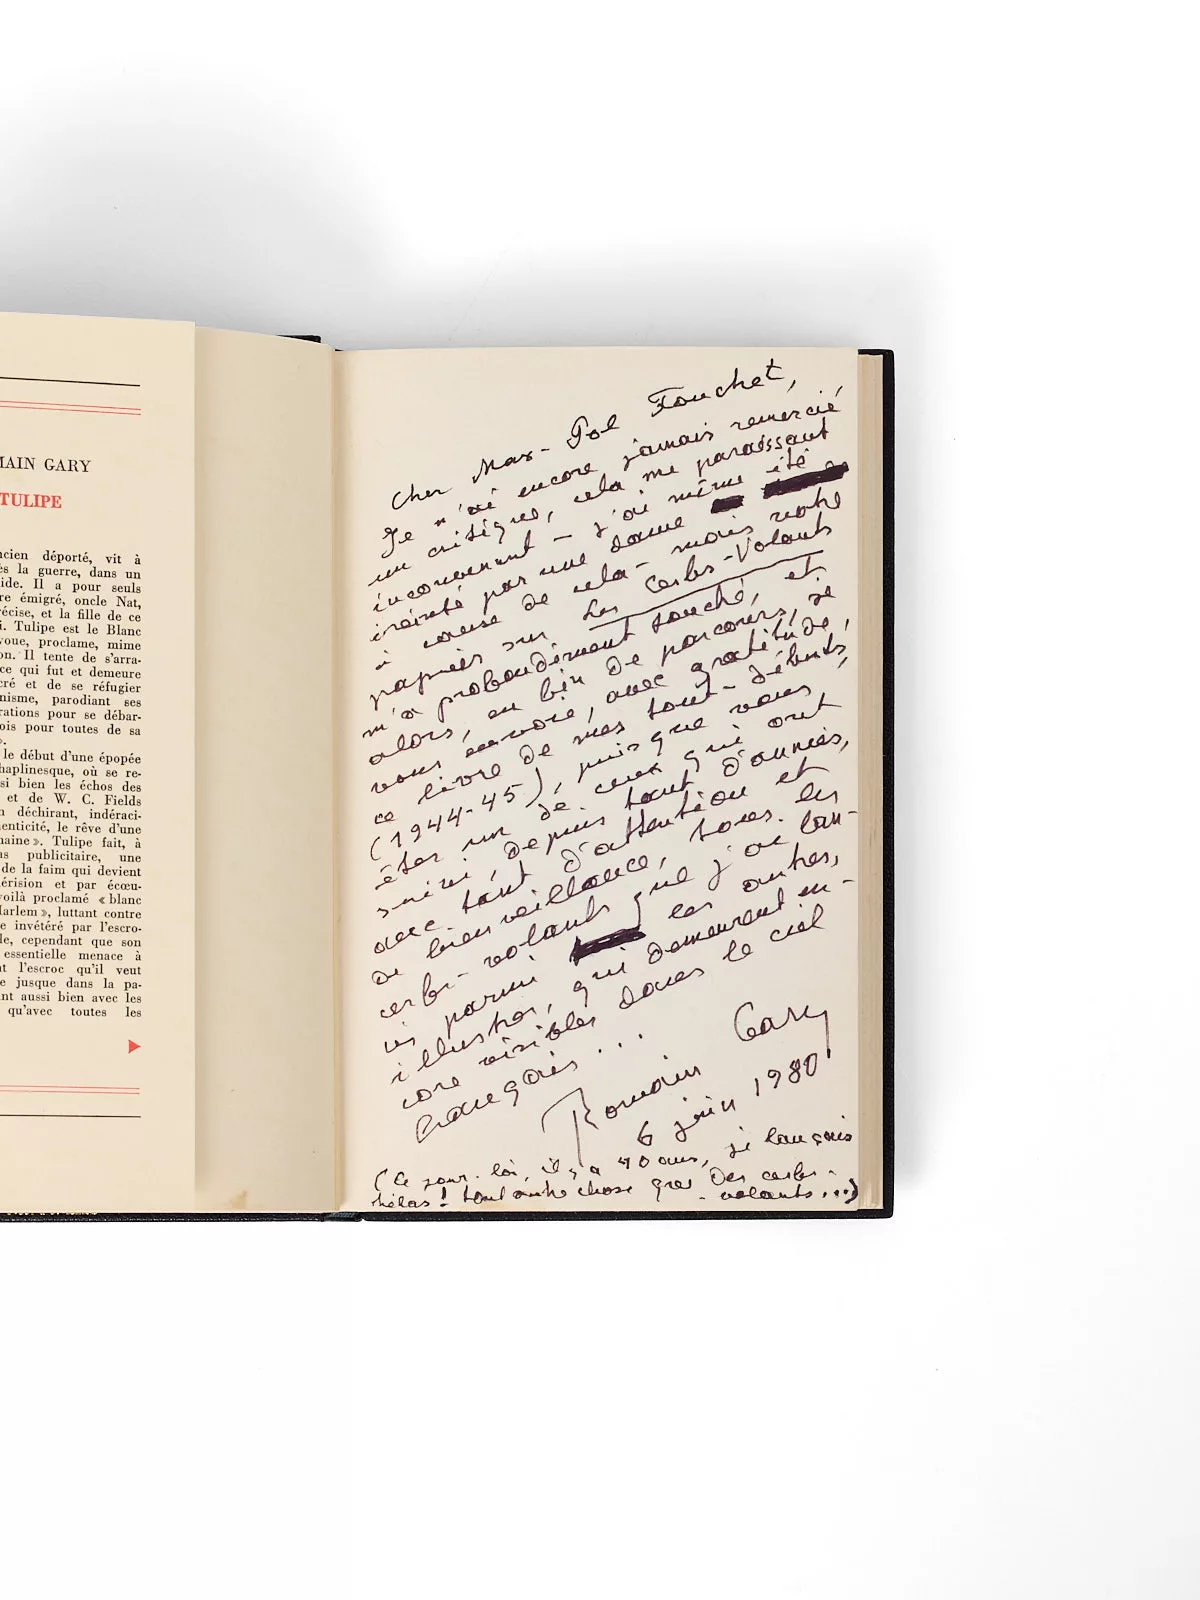 MAIN GARY
TULIPE
ncien déporté, vit à
ès la guerre, dans un
ide. Il a pour seuls
re émigré, oncle Nat,
récise, et la fille de ce
i. Tulipe est le Blanc
voue, proclame, mime
on. Il tente de s'arra-
ce qui fut et demeure
cré et de se réfugier
nisme, parodiant ses
rations pour se débar-
ois pour toutes de sa
».
le début d'une épopée
haplinesque, où se re-
si bien les échos des
et de W. C. Fields
n déchirant, indéraci-
nenticité, le rêve d'une
naine ». Tulipe fait, à
as publicitaire, une
de la faim qui devient
dérision et par écœu-
voilà proclamé « blanc
Harlem », luttant contre
e invétéré par l'escro-
le, cependant que son
essentielle menace à
nt l'escroc qu'il veut
e jusque dans la pa-
nt aussi bien avec les
qu'avec toutes les
Cher Max-Pol Fouchet,
Je n'ai encore jamais remercié
un critique, cela me paraissant
inconvenant - j'ai même été
éreinté par une dame
à cause de cela - mais votre
papier sur Les Cerfs-Volants
m'a profondément touché, et
alors, en fin de parcours, je
vous envoie, avec gratitude,
ce livre de mes tout-débuts,
(1944-45), puisque vous
êtes un de ceux qui ont
suivi, depuis tant d'années,
avec tant d'attention et
de bienveillance, tous les
cerfs-volants que j'ai lan-
cés parmi les autres,
illustres, qui demeurent en-
core visibles dans le ciel
français...
Romain Gary
6 juin 1980
(Ce jour-là, il y a 40 ans, je lançais
hélas! tout autre chose que des cerfs-
volants...)